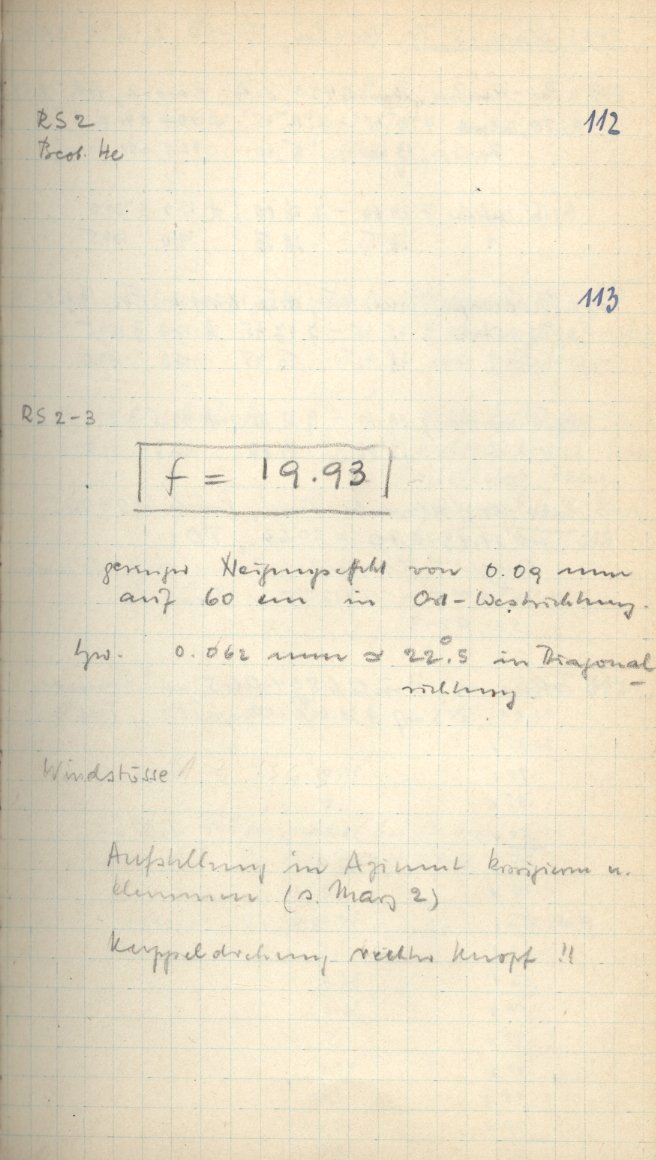 RS 2
112
Beob. He
113
RS 2-3
f = 19.93
geringer Neigungseffekt von 0.09 mm
auf 60 cm in Ost-Westrichtung.
bzw. 0.062 mm 22°.5 in Diagonal
richtung
Windstösse
Aufstellung in Azimut korrigieren u.
klemmen (s. März 2)
Kuppeldrehung rechter Knopf !!